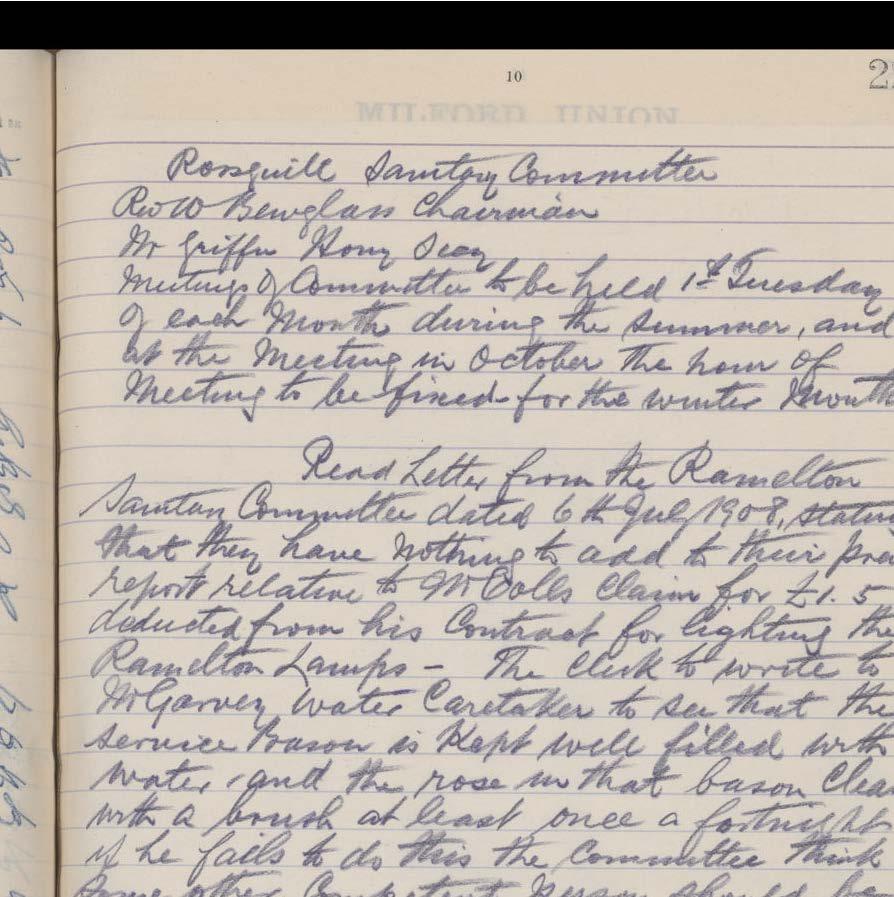 10
2
MILFORD UNION
Rossguill Sanitary Committee
Rev W Bewglass Chairman
Mr Griffin Hony Secy
Meetings of Committee to be held 1st Tuesday
of each Month during the Summer, and
at the Meeting in October the hour of
Meeting to be fixed for the winter Month
Read Letter from the Ramelton
Sanitary Committee dated 6th July 1908, statin
that they have nothing to add to their
report relative to Claim for £1. 5
deducted from his Contract for lighting the
Ramelton Lamps - The Clerk to write to
McGarvey Water Caretaker to see that the
service Bason is Kept well filled with
water, and the rose in that bason Clea
with a brush at least once a fortnight
if he fails to do this the Committee think
Some other Competent Person should be